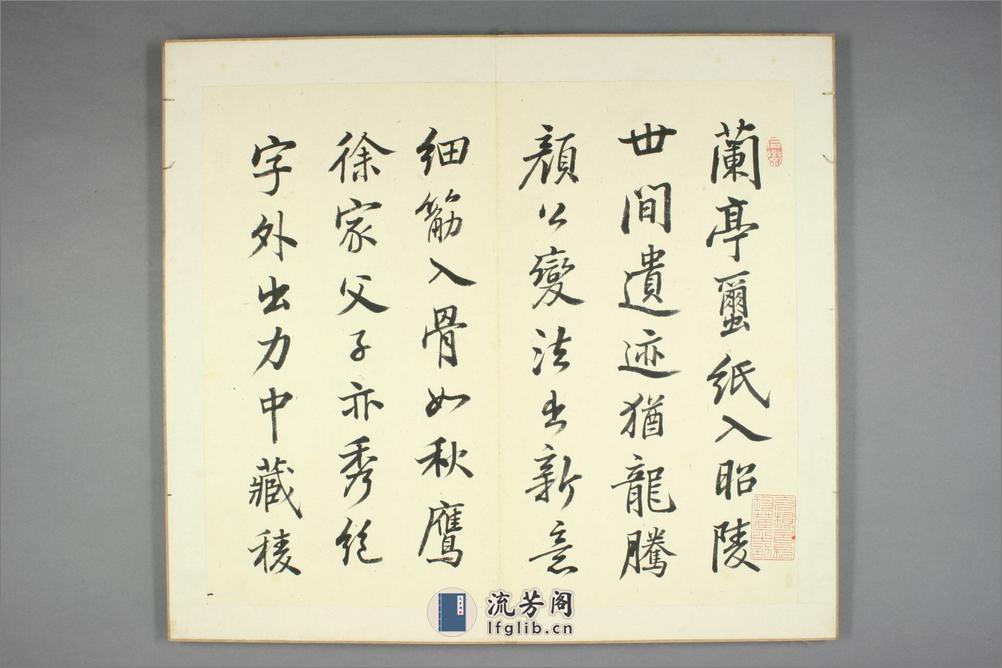 蘭亭璽紙入昭陵
世間遺迹猶龍騰
顏公變法出新意
細筋入骨如秋鷹
徐家父子亦秀絕
字外出力中藏稜
流芳阁
lfglib.cn